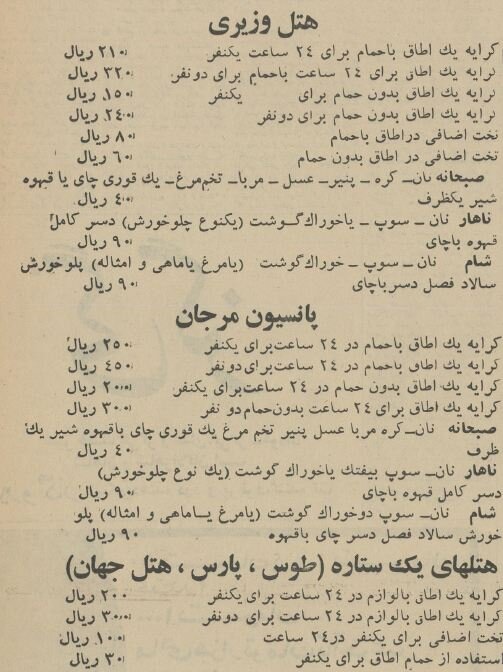 هتل وزیری
کرایه یك اطاق باحمام برای ۲٤ ساعت یكنفر ۲۱۰ ریال
کرایه یك اطاق برای ۲٤ ساعت باحمام برای دونفر ۳۲۰ ریال
کرایه یك اطاق بدون حمام برای یكنفر ۱۵۰ ریال
کرایه یك اطاق بدون حمام برای دونفر ۲٤۰ ریال
تخت اضافی دراطاق باحمام ۸۰ ریال
تخت اضافی در اطاق بدون حمام ۶۰ ریال
صبحانه نان_ کره _ پنیر_ عسل _ مربا_ تخم‌مرغ_ یك قوری چای یا قهوه
شیر یکظرف ٤۰ ریال
ناهار نان _ سوپ _ یاخوراك گوشت (یکنوع چلوخورش) دسر کامل
قهوه باچای ۹۰ ریال
شام نان_ سوپ _ خوراك گوشت (یامرغ یاماهی و امثاله) پلوخورش
سالاد فصل دسرباچای ۹۰ ریال
پانسیون مرجان
کرایه یك اطاق باحمام در ۲٤ ساعت برای یكنفر ۲۵۰ ریال
کرایه یك اطاق باحمام در ۲٤ ساعت برای دونفر ٤۵۰ ریال
کرایه یك اطاق بدون حمام در ۲٤ ساعت برای یکنفر ۲۰۰ ریال
کرایه یك اطاق برای ۲٤ ساعت بدون حمام دو نفر ۳۰۰ ریال
صبحانه نان_کره مربا عسل پنیر تخم مرغ یك قوری چای باقهوه شیر یك
ظرف ٤۰ ریال
ناهار نان_ سوپ بیفتك یاخوراك گوشت (یك نوع چلوخورش)
دسر کامل قهوه باچای ۹۰ ریال
شام نان_ سوپ دوخوراك گوشت (یامرغ یاماهی و امثاله) پلو
خورش سالاد فصل دسر چای باقهوه ۹۰ ریال
هتلهای یك ستاره (طوس ، پارس ، هتل جهان)
کرایه یك اطاق بالوازم در ۲٤ ساعت برای یکنفر ۲۰۰ ریال
کرایه یك اطاق بالوازم در ۲٤ ساعت برای دونفر ۳۰۰ ریال
تخت اضافی برای یکنفر در۲٤ ساعت ۱۰۰ ریال
استفاده از حمام اطاق برای یکنفر ۳۰ ریال